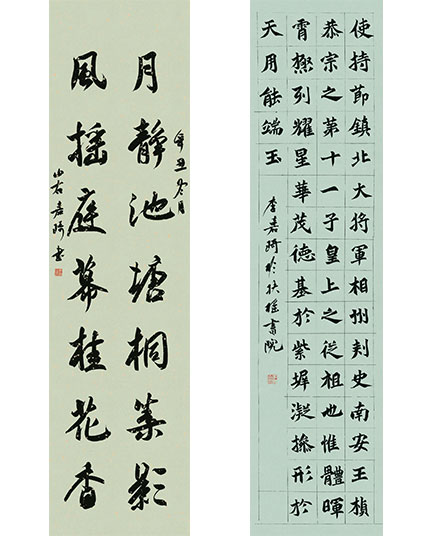 月静池塘桐葉影
辛丑冬月
風摇庭幕桂花香
山右嘉琦书
使持節鎮北大將軍相州刾史南安王楨
恭宗之第十一子皇上之從祖也惟體暉
霄極列耀星華茂德基於紫墀凝操形於
天用能端玉
李嘉琦於扶摇書院